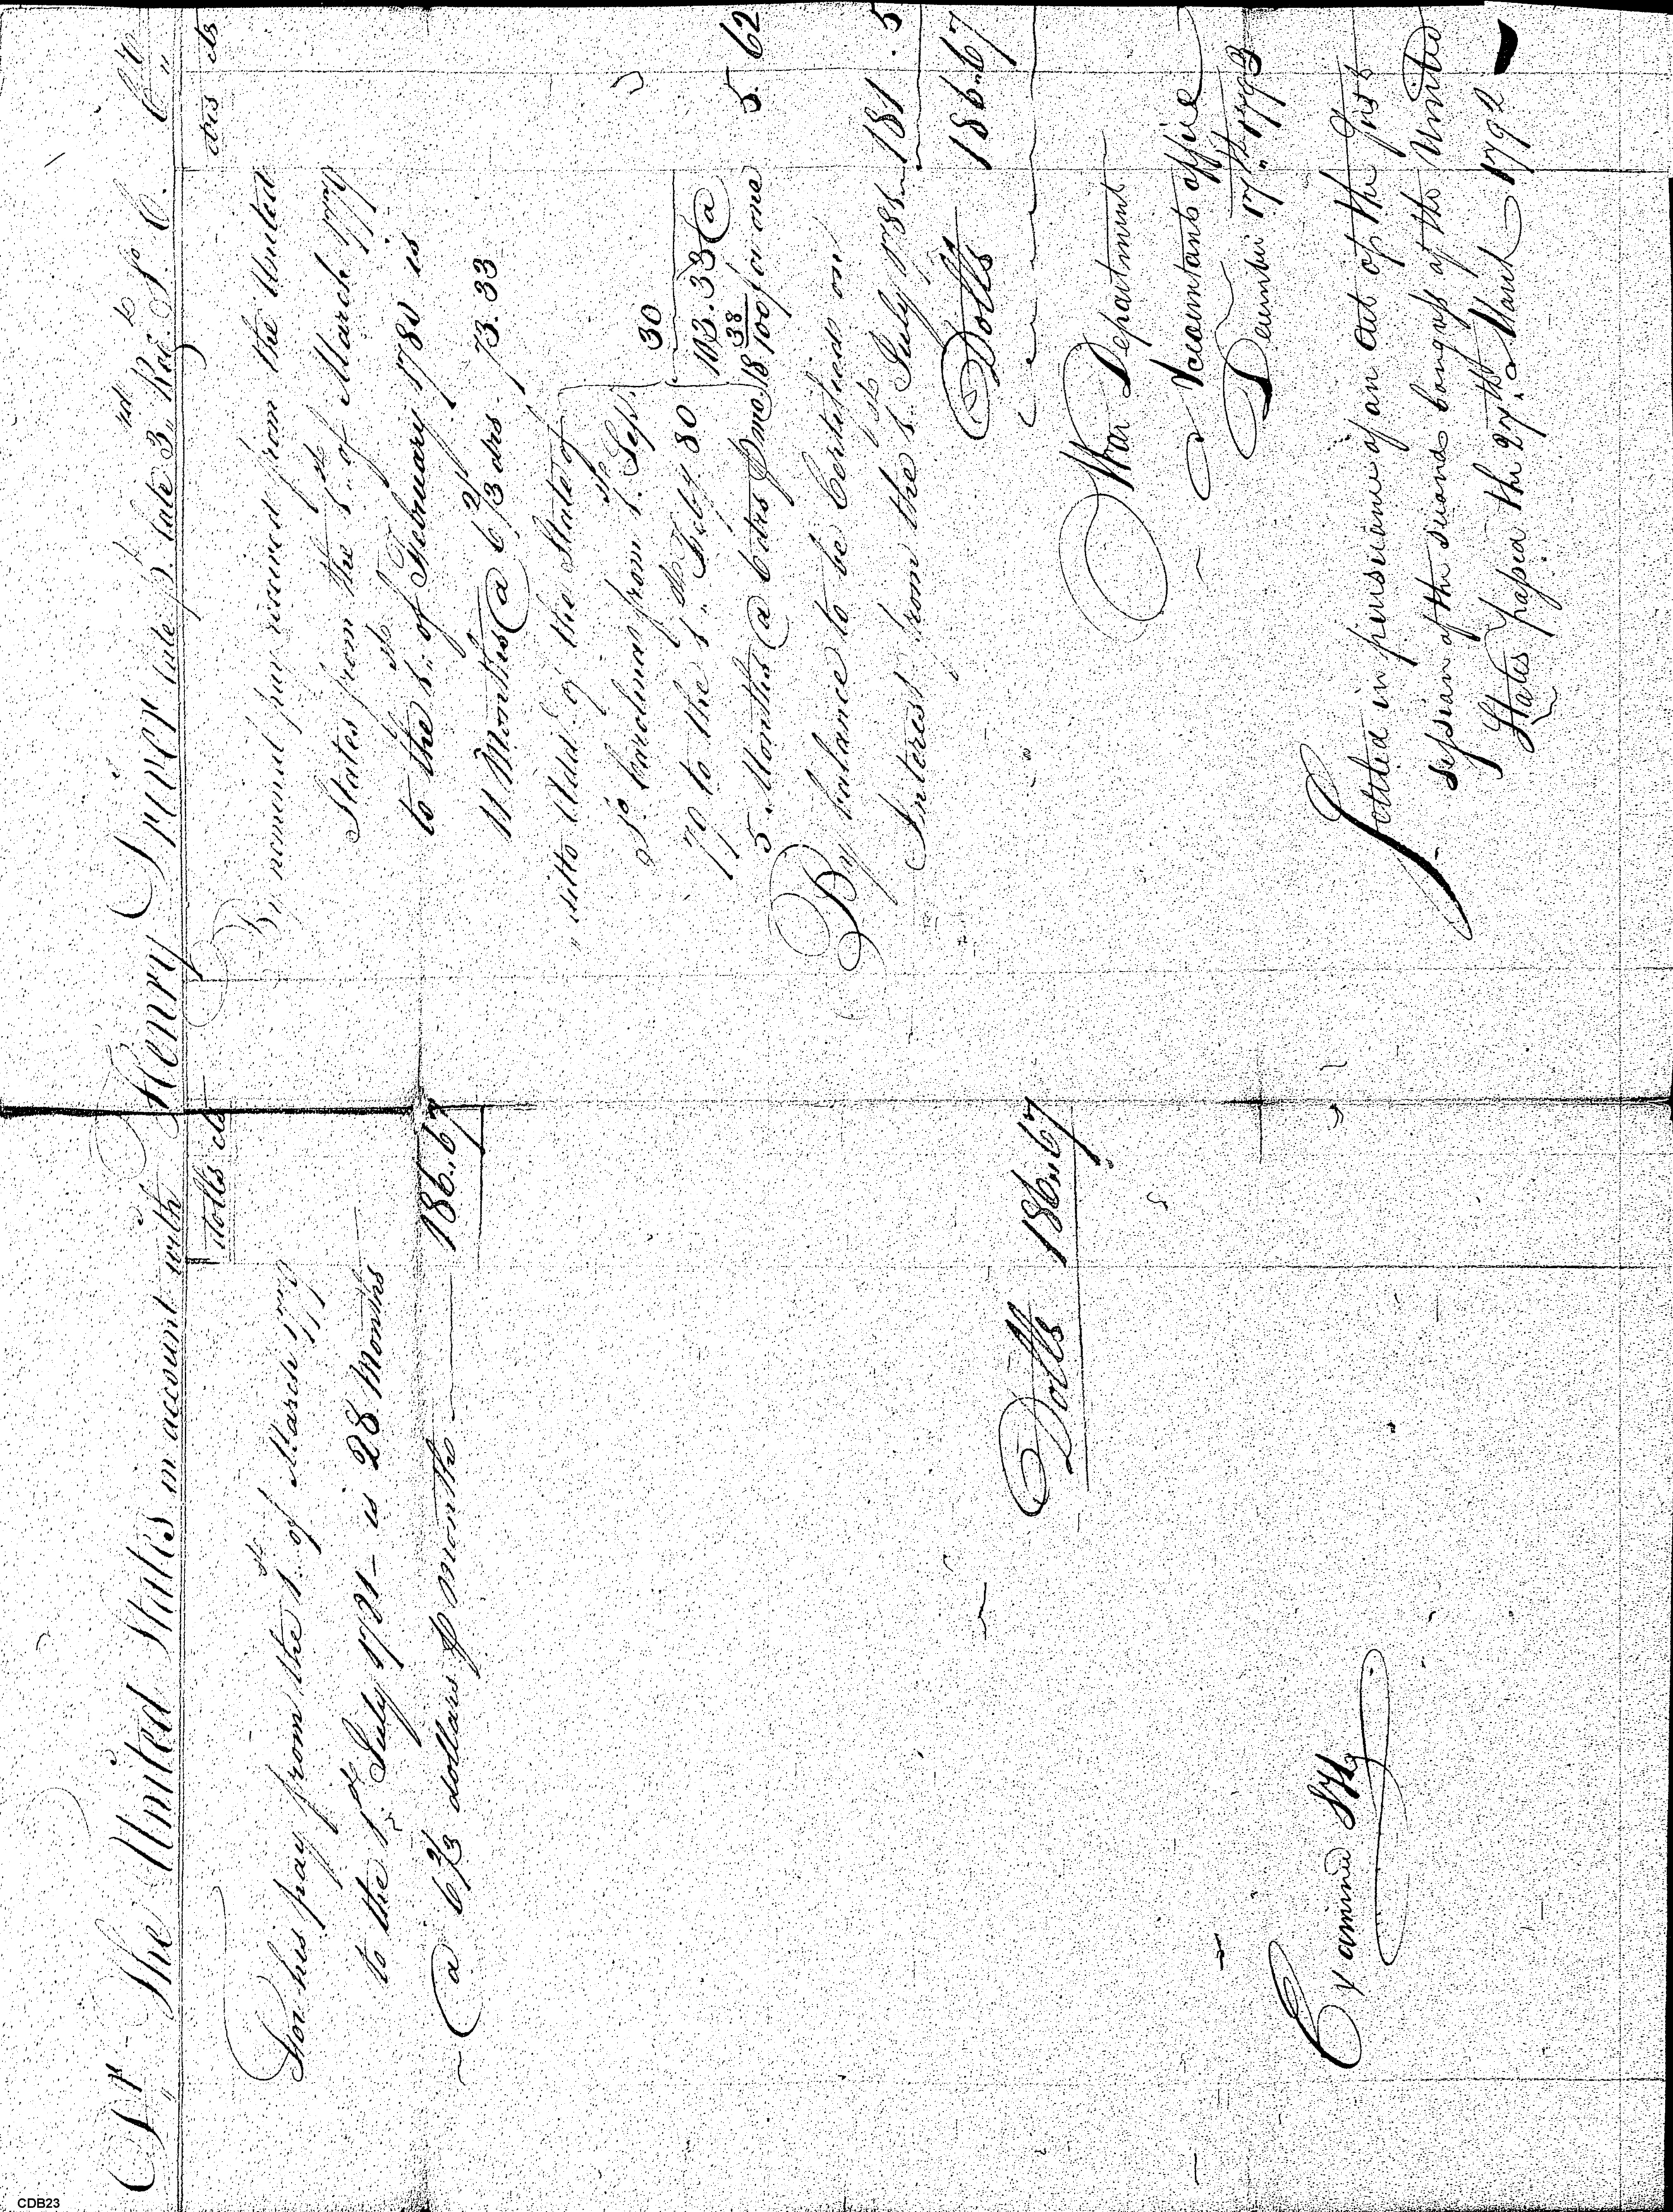 Dr The United States in account with Henry late Serjt. late 3rd Regt. So. C. Cr.
dolls cts
For his pay from the 1st of March 1779
to the 1st July 1781 - is 28 Months
@ 6 2/3 dollars ⅌ month 186.67
Dolls 186.67
Examined
drs cts
By nominal pay received from the United
States from the 1st of March 1779
to the 1st of February 1780 is
11 Months @ 6 2/3 drs. 73.33
" ditto of the State of
So. Carolina from 1st Sept.
79 to the 1st Feby 80
5 Months @ 6 drs ⅌ mo 30
103.33 @
18 38/100 for one 5.62
By balance to be Certified on
Interest from the 1st July 1781 181.5
Dolls 186.67
War Department
Accountants office
December 17th 1793
Settled in pursuance of an act of the first
session of the second congress of the United
States passed the 27th March 1792
CDB23